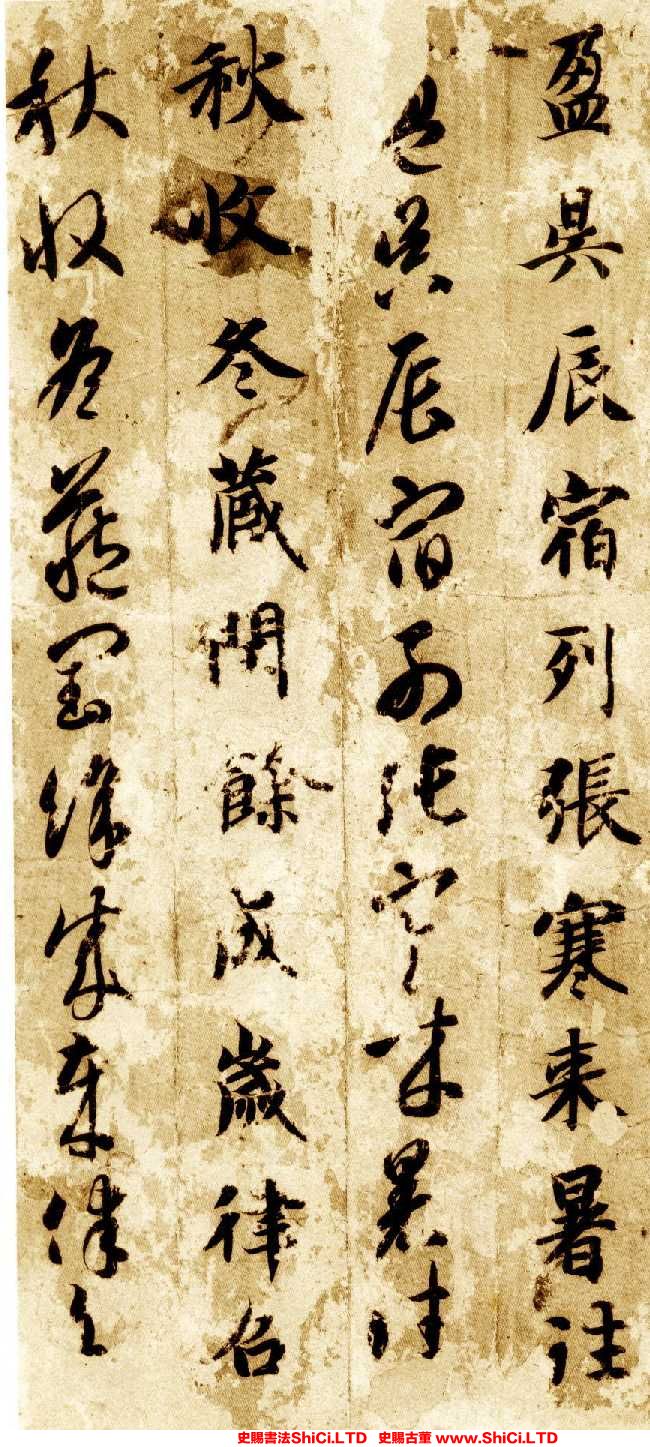 盈昃辰宿列張寒来暑往
盈昃辰宿列張寒来暑往
秋收冬藏閏餘成歲律召
秋收冬藏閏餘成歲律召
史賜書法ShiCi.LTD 史賜古董 www.ShiCi.LTD